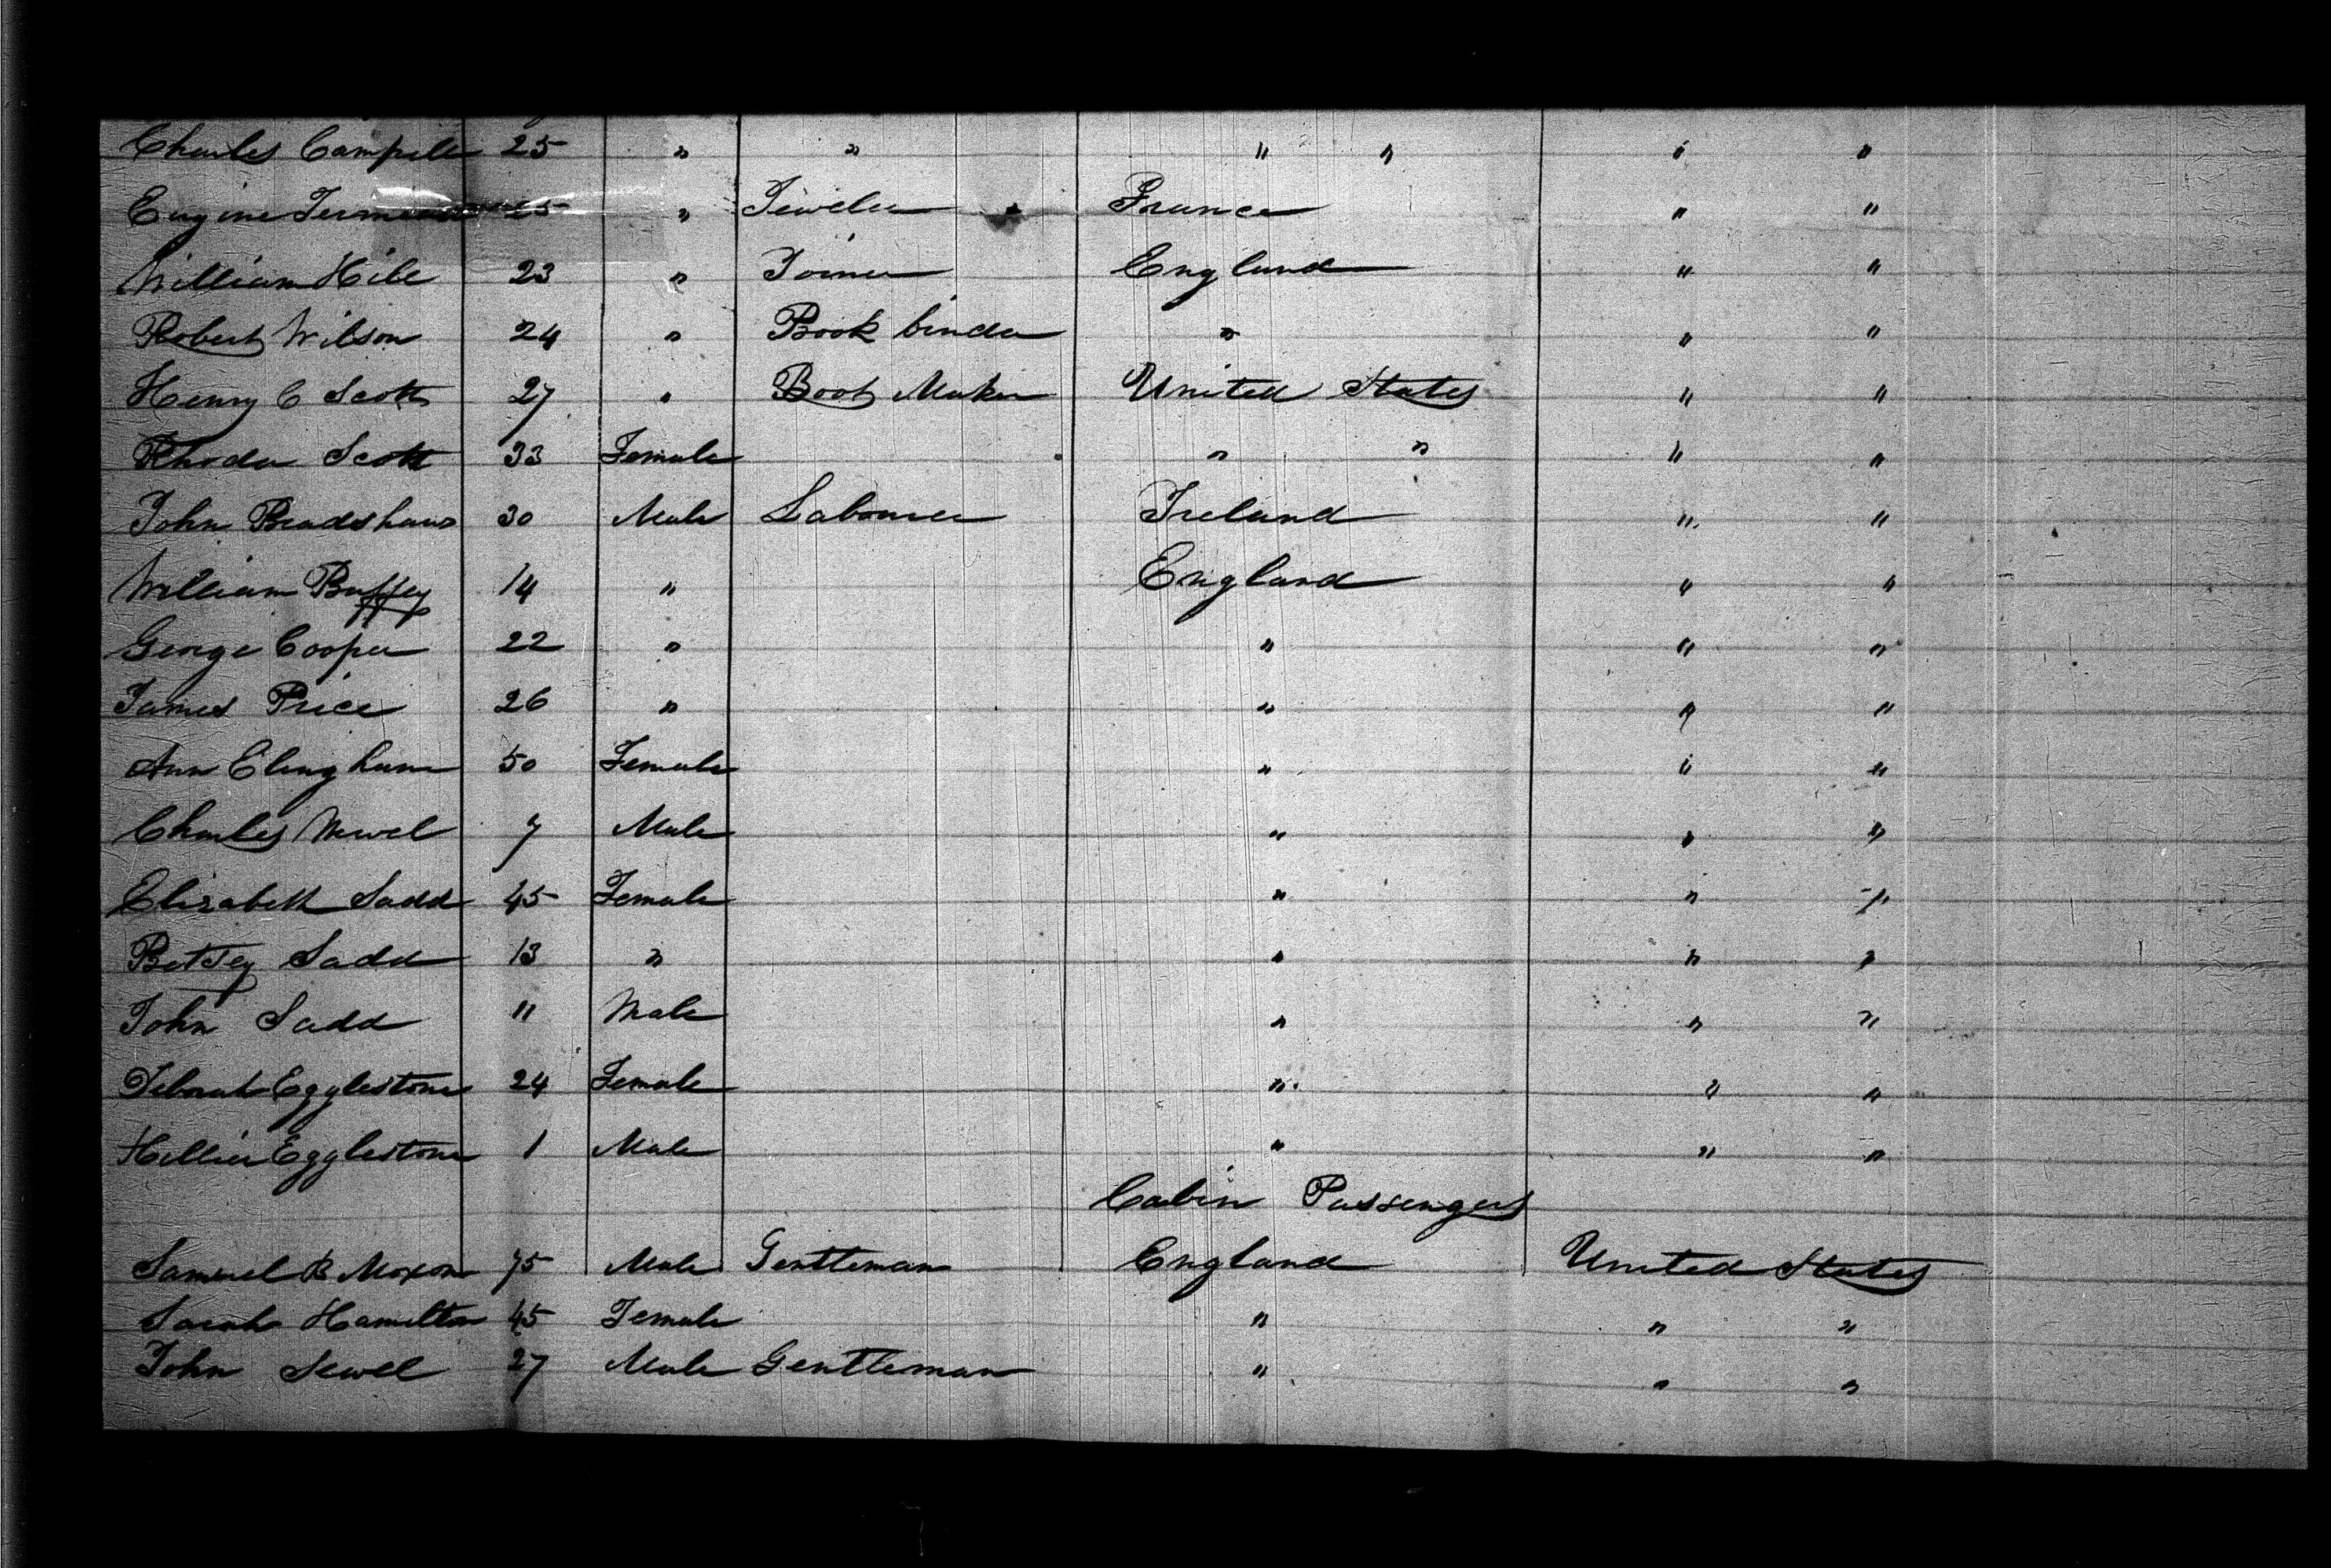 Charles Campell 25 " " " " " "
Eugine 25 " Jeweler France " "
William Hill 23 " Joiner England " "
Robert Wilson 24 " Book binder " " "
Henry C Scott 27 " Boot Maker United States " "
Rhoda Scott 33 Female " " " "
John Bradshaw 30 Male Labourer Ireland " "
William Buffey 14 " England " "
George Cooper 22 " " " "
James Price 26 " " " "
Ann Elingham 50 Female " " "
Charles Newel 7 Male " " "
Elizabeth Sadd 45 Female " " "
Betsey Sadd 13 " " " "
John Sadd 11 Male " " "
Deborah Egglestone 24 Female " " "
Hellier Egglestone 1 Male " " "
Cabin Passengers
Samuel B Moxon 75 Male Gentleman England United States
Sarah Hamilton 45 Female " " "
John Sewel 27 Male Gentleman " " "